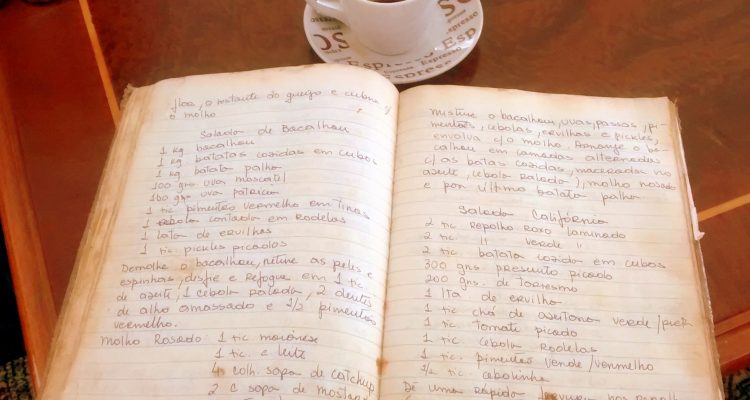 OSS
Espresso
Espresso
, o restante do queijo e cubra c/
o molho
Salada de Bacalhau
1 kg bacalhau
1 kg batatas cozidas em cubos
1 kg batata palha
100 grs uva moscatel
100 grs uva
1 tic pimentão vermelho em tiras
1 cebola cortada em Rodelas
1 lata de ervilhas
1 tic. pickles picados
Demolhe o bacalhau, retire as peles e
espinhas, desfie e Refogue em 1 tic.
de azeite, 1 cebola Ralada, 2 dentes
de alho amassado e 1/2 pimentão
vermelho.
Molho Rosado: 1 tic maionese
1 tic. c leite
4 colh. sopa de catchup
2 c sopa de mostarda
Misture o bacalhau, uvas, passas, pi-
mentões, cebolas, ervilhas e pickles,
envolva c/ o molho. Arrange o ba-
calhau em camadas alternadas
c/ as batas cozidas, macerada no
azeite, (cebola Ralada), molho rosado
e por último batata palha
Salada Califórnia
2 tic Repolho Roxo laminado
2 tic. " verde "
2 tic. batata cozida em cubos
300 grs presunto picado
200 grs. de Torresmo
1 lta de ervilha
1 tic chá de azeitona verde/preta
1 tic. Tomate picado
1 tic. cebola Rodelas
1 tic. pimentão verde/vermelho
1/2 tic. cebolinha
Dê uma Rápida fervura nos Repolhos